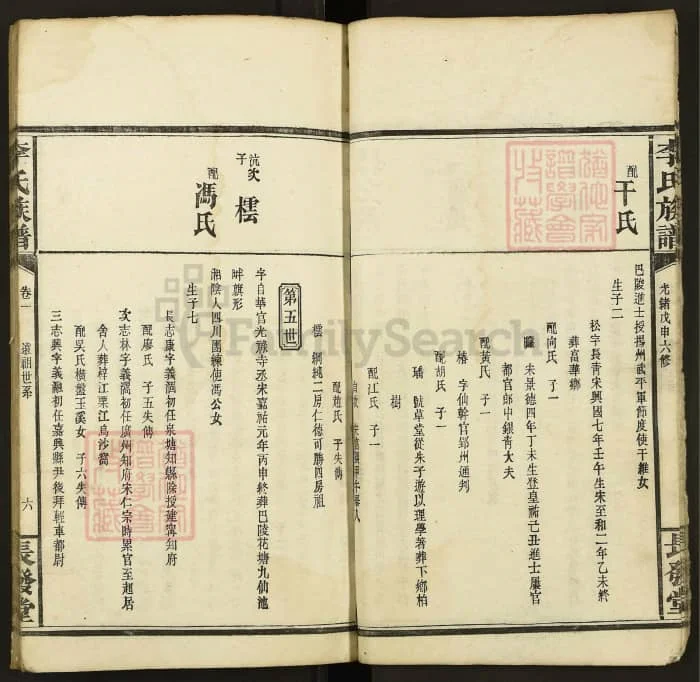 李氏族譜
光緒戊申六修
長發堂
配干氏
巴陵進士授揚州武平軍節度使干維女
生子二
松 字長青宋興國七年壬午生宋至和二年乙未終
葬富華鄉
配向氏 子一
未景德四年丁未生登皇祐己丑進士屢官
都官郎中銀青大夫
配黃氏 子一
椿 字仙幹官鄂州通判
配胡氏 子一
號草堂從朱子遊以理學著葬下鄉柏
樹
配江氏 子一
配趙氏 子失傳
第五世
沆次子 櫺
配馮氏
字自華官光祿寺丞宋嘉祐元年丙申終葬巴陵花塘九仙池
畔旗形
湘陰人四川團練使馮公女
生子七
長志康字義溫初任泉塘知縣陞授建寧知府
配廖氏 子五失傳
次志林字義濡初任廣州知府宋仁宗時累官至起居
舍人葬梓江栗江鳥沙窩
配吳氏橫盤玉溪女 子六失傳
三志興字義融初任嘉興縣尹後拜輕車都尉
李氏族譜
卷一
道祖世系
六
長發堂
FamilySearch